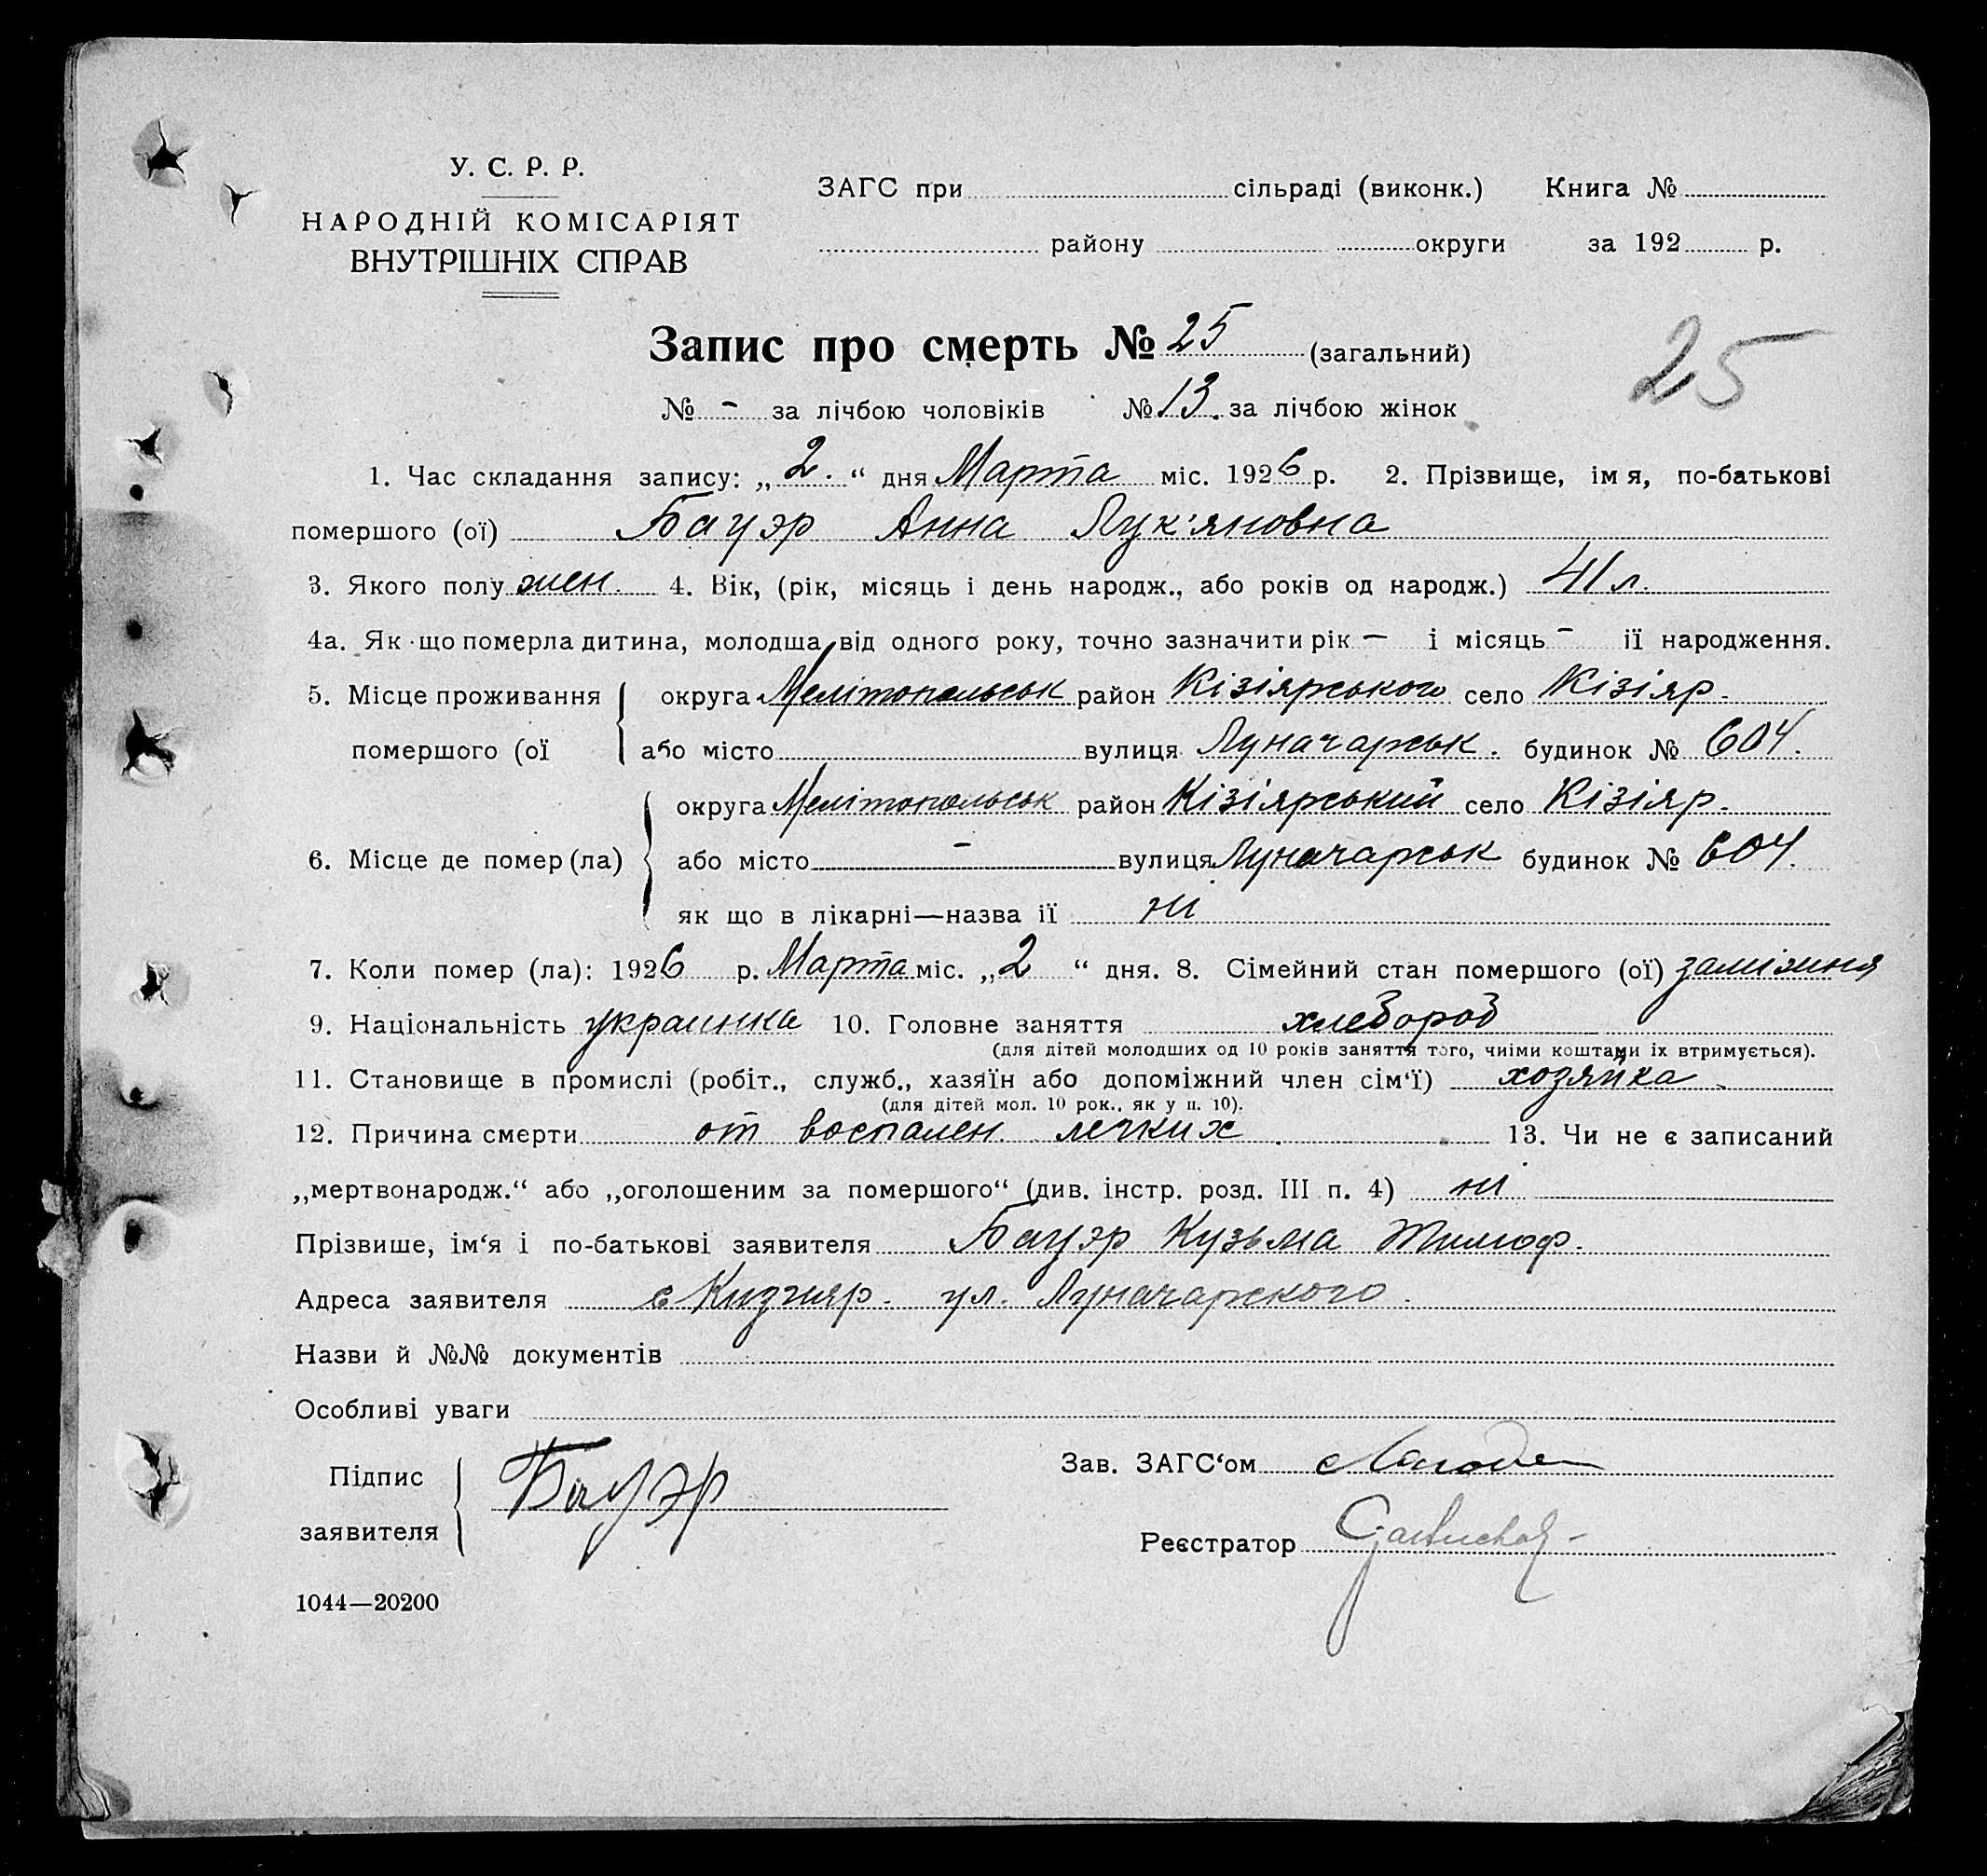 У. С. Р. Р.
НАРОДНІЙ КОМІСАРІЯТ
ВНУТРІШНІХ СПРАВ
ЗАГС при сільраді (виконк.) Книга №
району округи за 192 р.
Запис про смерть № 25 (загальний)
25
№ - за лічбою чоловіків № 13. за лічбою жінок
1. Час складання запису: „2.“ дня Марта міс. 1926 р. 2. Прізвище, імя, по-батькові
помершого (ої) Бауэр Анна Лук'яновна
3. Якого полу жен. 4. Вік, (рік, місяць і день народж., або років од народж.) 41 л.
4а. Як що померла дитина, молодша від одного року, точно зазначити рік — і місяць - її народження.
5. Місце проживання округа Мелітопольськ район Кізіярського село Кізіяр.
помершого (ої або місто вулиця Луначарськ. будинок № 604.
округа Мелітопольськ район Кізіярський село Кізіяр.
6. Місце де помер (ла) або місто - вулиця Луначарськ будинок № 604.
як що в лікарні—назва її ні
7. Коли помер (ла): 1926 р. Марта міс. „2“ дня. 8. Сімейний стан помершого (ої) заміжня
9. Національність украинка 10. Головне заняття хлебороб
(для дітей молодших од 10 років заняття того, чиїми коштами їх втримується).
11. Становище в промислі (робіт., служб., хазяїн або допоміжний член сім'ї) хозяйка
(для дітей мол. 10 рок., як у п. 10).
12. Причина смерти от воспален. легких. 13. Чи не є записаний
„мертвонародж.“ або „оголошеним за помершого“ (див. інстр. розд. III п. 4) ні
Прізвише, ім'я і по-батькові заявителя Бауэр Кузьма Тимоф.
Адреса заявителя с Кизияр. ул. Луначарского.
Назви й №№ документів
Особливі уваги
Підпис
заявителя Бауэр
Зав. ЗАГС'ом
Реєстратор
1044—20200